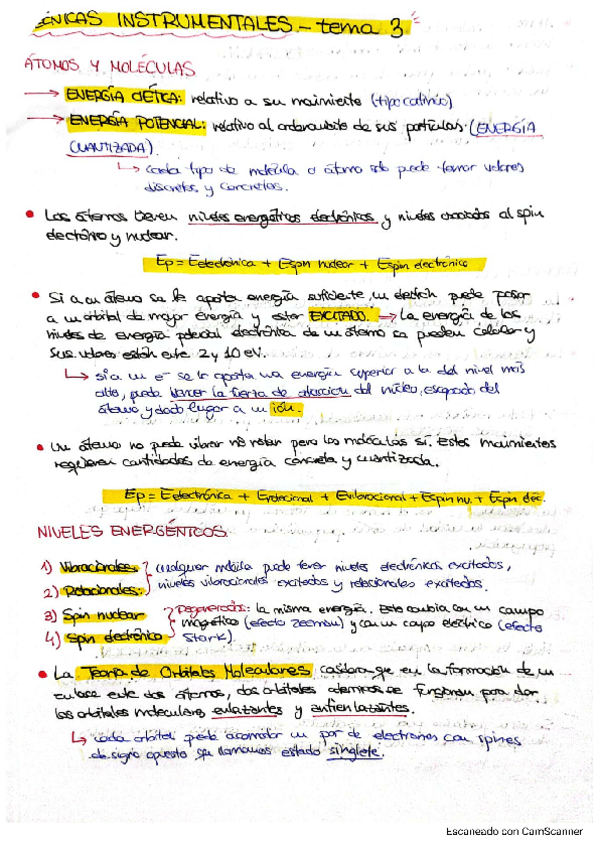 CNICAS INSTRUMENTALES. – tema 3.
ÁTOMOS Y MOLÉCULAS
→ ENERGÍA CIÉTICA: relativo a su movimiento (tipo calorífico)
→ ENERGÍA POTENCIAL: relativo al ordenamiento de sus partículas. (ENERGÍA
CUANTIZADA).
↳ cada tipo de molécula o átomo solo puede tomar valores
discretos y concretos.
• Los átomos tienen niveles energéticos electrónicos y niveles asociados al spin
electrónico y nuclear.
Ep = Eelectrónica + Espin nuclear + Espin electrónico
• Si a un átomo se le aporta energía suficiente, un electrón puede pasar
a un orbital de mayor energía y estar EXCITADO. → La energía de los
niveles de energía potencial electrónica de un átomo se pueden calcular y
sus valores están entre 2 y 10 eV.
↳ si a un e⁻ se le aporta una energía superior a la del nivel más
alto, puede vencer la fuerza de atracción del núcleo, escapando del
átomo y dando lugar a un ión.
• Un átomo no puede vibrar ni rotar pero las moléculas sí. Estos movimientos
requieren cantidades de energía concreta y cuantizada.
Ep = Eelectrónica + Erotacional + Evibracional + Espin nu. + Espin elec.
NIVELES ENERGÉNTICOS
1) Vibracionales
2) Rotacionales
cualquier molécula puede tener niveles electrónicos excitados,
niveles vibracionales excitados y rotacionales excitados.
3) Spin nuclear
4) Spin electrónico
Degenerados: la misma energía. Esto cambia con un campo
magnético (efecto zeeman) y con un campo eléctrico (efecto
Stark).
• La Teoría de Orbitales Moleculares considera que en la formación de un
enlace entre dos átomos, dos orbitales atómicos se fusionan para dar
los orbitales moleculares enlazantes y antienlazantes.
↳ cada orbital puede acomodar un par de electrones con spines
de signo opuesto que llamamos estado singlete.
Escaneado con CamScanner